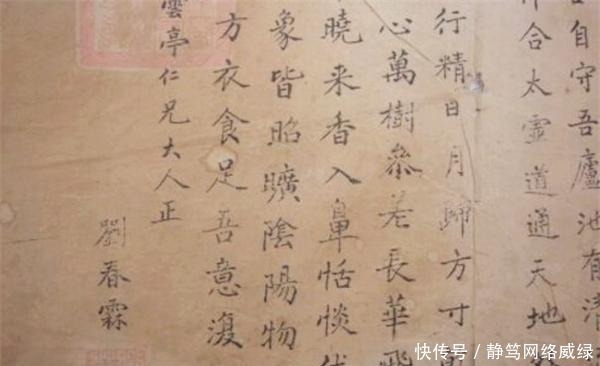 自守吾廬池有清
合太虛道通天地
行精日月歸方寸
心萬樹參差長華飛
曉来香入鼻恬惔
象皆昭曠陰陽物
方衣食足吾意復
雲亭仁兄大人正
劉春霖
快传号 / 静笃网络威绿